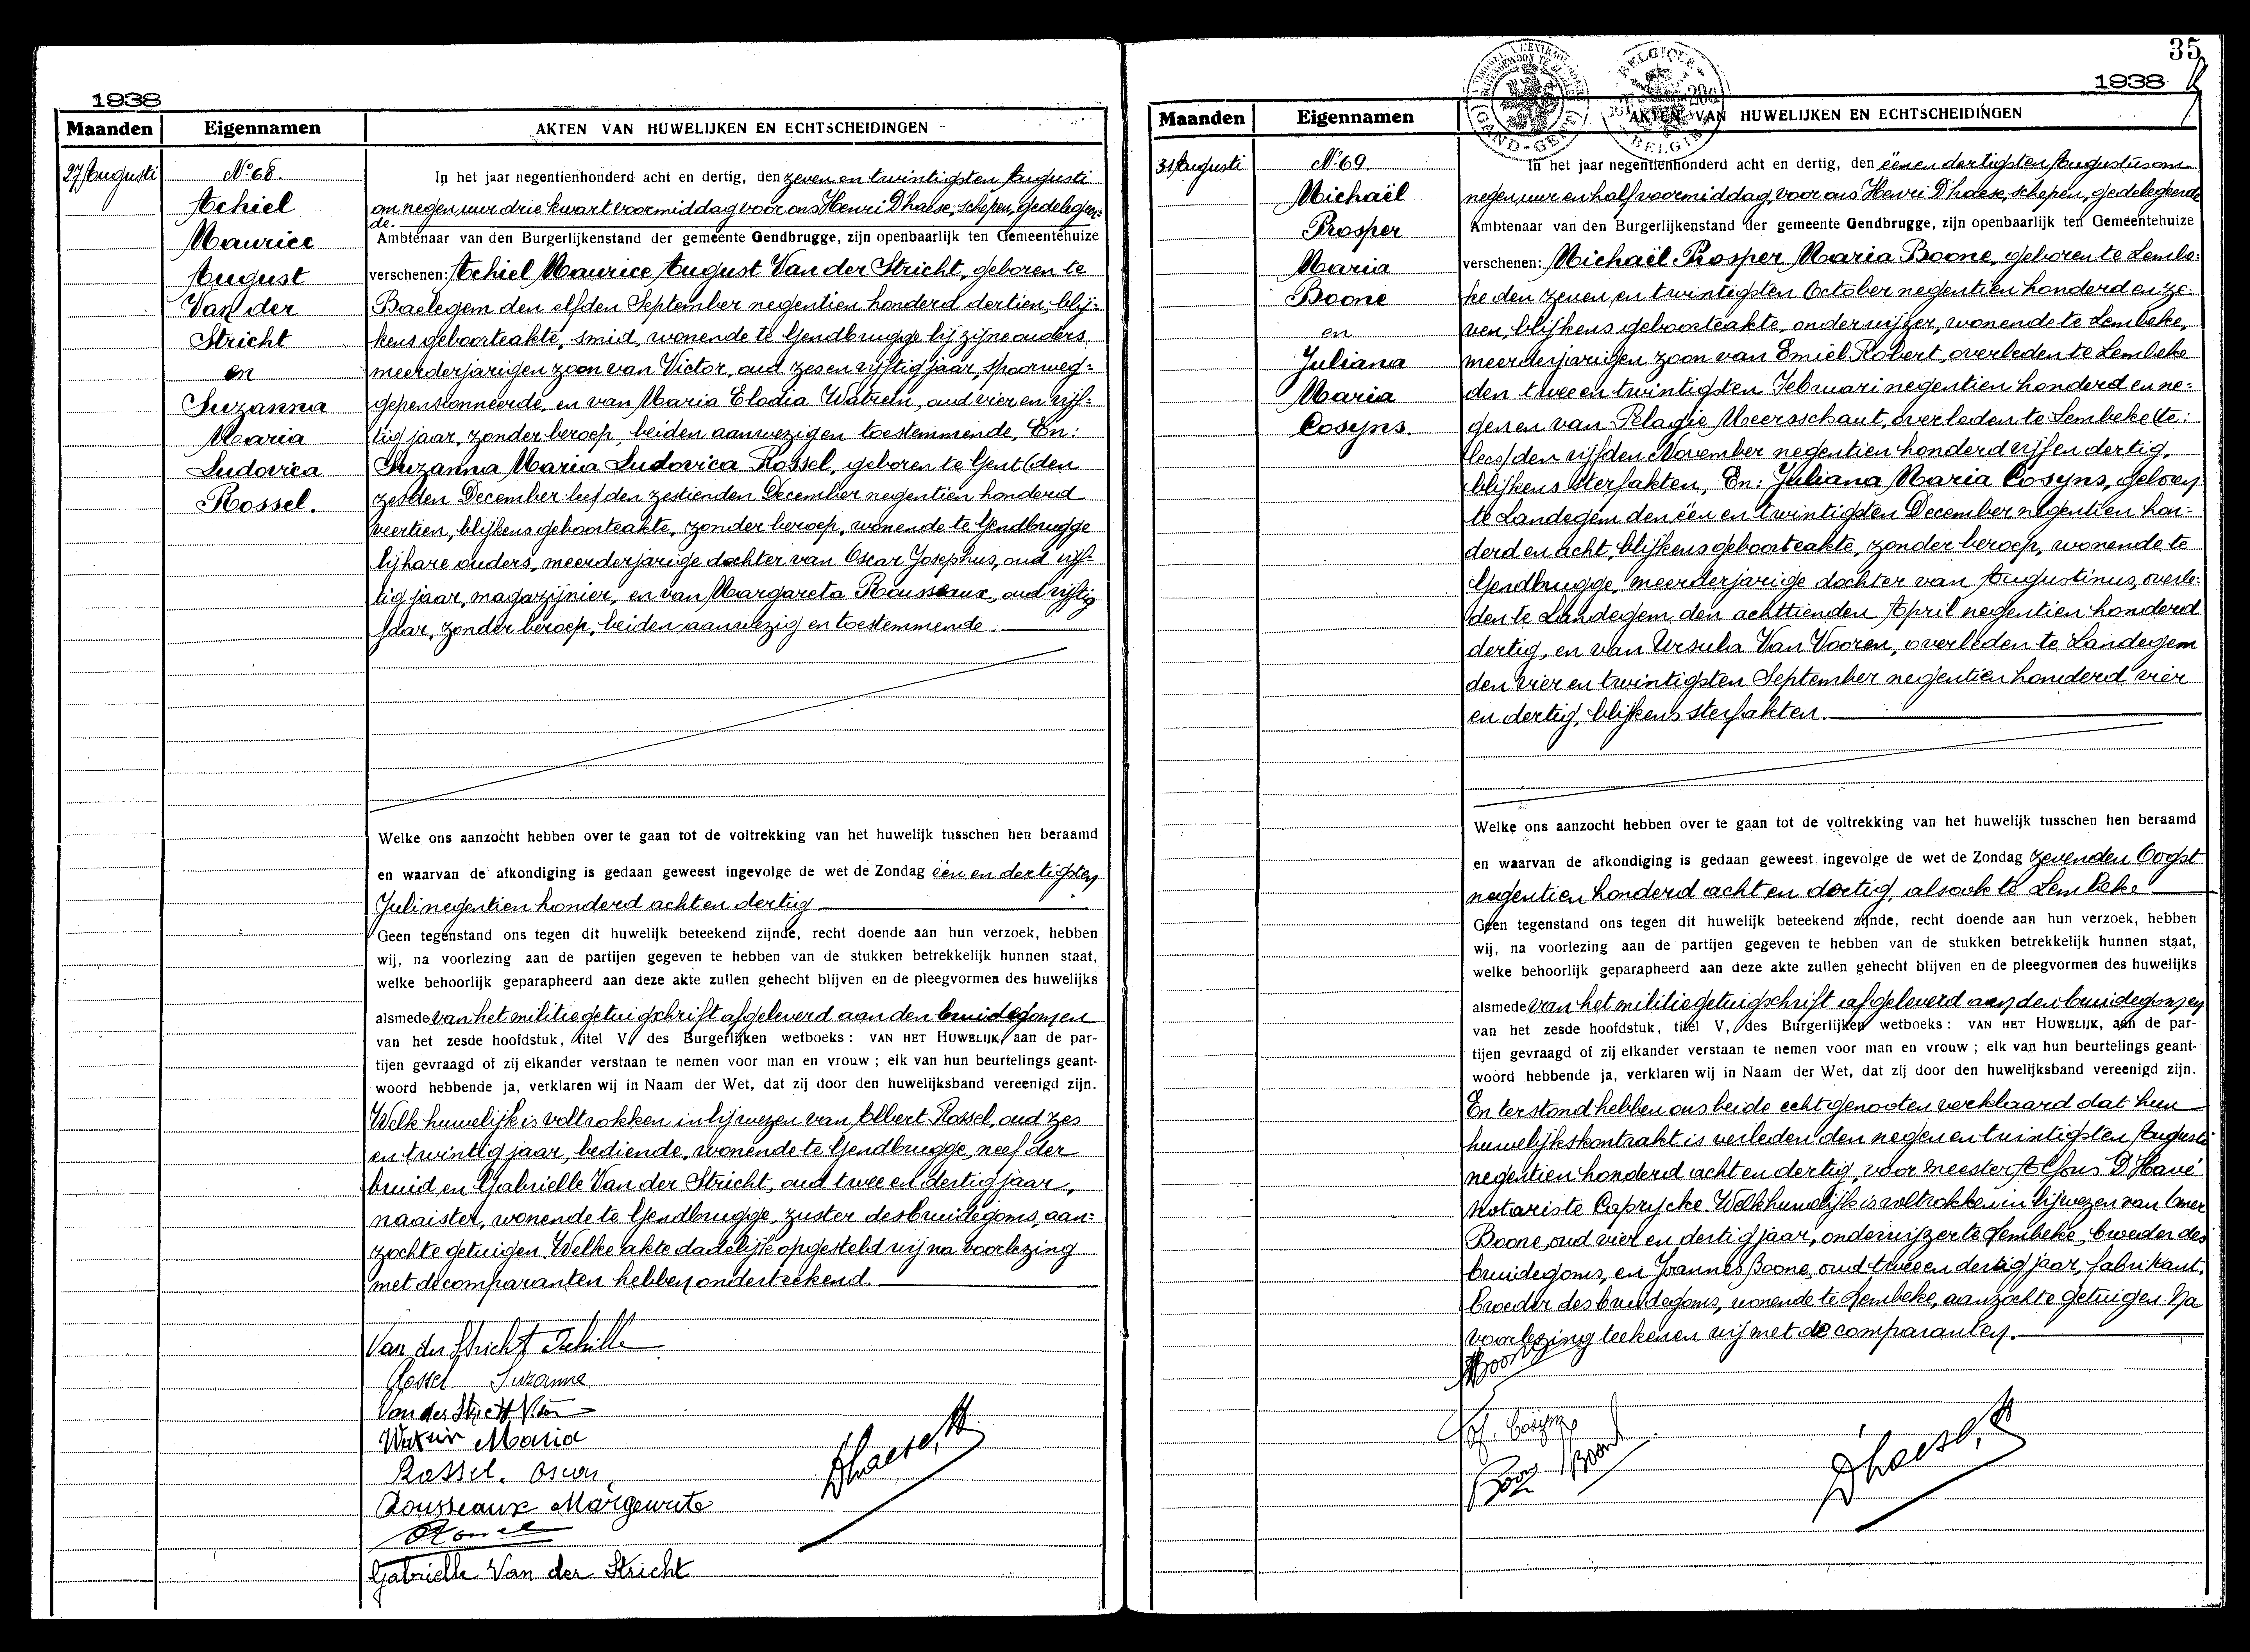 1938
Maanden Eigennamen AKTEN VAN HUWELIJKEN EN ECHTSCHEIDINGEN
27 Augusti
No 68.
Achiel
Maurice
August
Van der
Stricht
en
Suzanna
Maria
Ludovica
Rossel.
In het jaar negentienhonderd acht en dertig, den zeven en twintigsten Augusti
om negen uur drie kwart voormiddag voor ons Henri D'haese, schepen, gedelegeer=
de.
Ambtenaar van den Burgerlijkenstand der gemeente Gendbrugge, zijn openbaarlijk ten Gemeentehuize
verschenen: Achiel Maurice August Van der Stricht, geboren te
Baelegem den elfden September negentien honderd dertien, blij=
kens geboorteakte, smid, wonende te Gendbrugge bij zijne ouders,
meerderjarigen zoon van Victor, oud zes en vijftig jaar, spoorweg=
gepensionneerde, en van Maria Elodia Watrein, oud vier en vijf=
tig jaar, zonder beroep, beiden aanwezig en toestemmende, En:
Suzanna Maria Ludovica Rossel, geboren te Gent (den
zesden December lees) den zestienden December negentien honderd
veertien, blijkens geboorteakte, zonder beroep, wonende te Gendbrugge
bij hare ouders, meerderjarige dochter van Oscar Josephus, oud vijf=
tig jaar, magazijnier, en van Margareta Rousseaux, oud vijftig
jaar, zonder beroep, beiden aanwezig en toestemmende.
Welke ons aanzocht hebben over te gaan tot de voltrekking van het huwelijk tusschen hen beraamd
en waarvan de afkondiging is gedaan geweest ingevolge de wet de Zondag één en dertigsten
Juli negentien honderd acht en dertig
Geen tegenstand ons tegen dit huwelijk beteekend zijnde, recht doende aan hun verzoek, hebben
wij, na voorlezing aan de partijen gegeven te hebben van de stukken betrekkelijk hunnen staat,
welke behoorlijk geparapheerd aan deze akte zullen gehecht blijven en de pleegvormen des huwelijks
alsmede van het militiegetuigschrift afgeleverd aan den bruidegom, en
van het zesde hoofdstuk, titel V, des Burgerlijken wetboeks: VAN HET HUWELIJK, aan de par-
tijen gevraagd of zij elkander verstaan te nemen voor man en vrouw ; elk van hun beurtelings geant-
woord hebbende ja, verklaren wij in Naam der Wet, dat zij door den huwelijksband vereenigd zijn.
Welk huwelijk is voltrokken in bijwezen van Albert Rossel, oud zes
en twintig jaar, bediende, wonende te Gendbrugge, neef der
bruid en Gabrielle Van der Stricht, oud twee en dertig jaar,
naaister, wonende te Gendbrugge, zuster des bruidegoms, aan=
zochte getuigen. Welke akte dadelijk opgesteld wij na voorlezing
met de comparanten hebben onderteekend.
Van der Stricht Achille
Rossel Suzanne
Van der Stricht
Watrein Maria
Rossel. Oscar
Rousseaux Marguerite
Rossel
Gabrielle Van der Stricht
Dhaese, H
35
1938
Maanden Eigennamen AKTEN VAN HUWELIJKEN EN ECHTSCHEIDINGEN
31 Augusti
No 69
Michaël
Prosper
Maria
Boone
en
Juliana
Maria
Cosyns.
In het jaar negentienhonderd acht en dertig, den éénen dertigsten Augustus om
negen uur en half voormiddag, voor ons Henri D'haese, schepen, gedelegeerde
Ambtenaar van den Burgerlijkenstand der gemeente Gendbrugge, zijn openbaarlijk ten Gemeentehuize
verschenen: Michaël Prosper Maria Boone, geboren te Lembe=
ke den zeven en twintigsten October negentien honderd en ze=
ven, blijkens geboorteakte, onderwijzer, wonende te Lembeke,
meerderjarigen zoon van Emiel Robert, overleden te Lembeke
den twee en twintigsten Februari negentien honderd en ne=
gen en van Pelagie Meersschaut, overleden te Lembeke (te:
lees) den vijfden November negentien honderd vijf en dertig,
blijkens sterfakten, En: Juliana Maria Cosyns, geboren
te Landegem den één en twintigsten December negentien hon=
derd en acht, blijkens geboorteakte, zonder beroep, wonende te
Gendbrugge, meerderjarige dochter van Augustinus, overle=
den te Landegem den achttienden April negentien honderd
dertig, en van Ursula Van Vooren, overleden te Landegem
den vier en twintigsten September negentien honderd vier
en dertig, blijkens sterfakten.
Welke ons aanzocht hebben over te gaan tot de voltrekking van het huwelijk tusschen hen beraamd
en waarvan de afkondiging is gedaan geweest ingevolge de wet de Zondag zevenden Oogst
negentien honderd acht en dertig, alsook te Lembeke
Geen tegenstand ons tegen dit huwelijk beteekend zijnde, recht doende aan hun verzoek, hebben
wij, na voorlezing aan de partijen gegeven te hebben van de stukken betrekkelijk hunnen staat,
welke behoorlijk geparapheerd aan deze akte zullen gehecht blijven en de pleegvormen des huwelijks
alsmede van het militiegetuigschrift afgeleverd aan den bruidegom, en
van het zesde hoofdstuk, titel V, des Burgerlijken wetboeks : VAN HET HUWELIJK, aan de par-
tijen gevraagd of zij elkander verstaan te nemen voor man en vrouw ; elk van hun beurtelings geant-
woord hebbende ja, verklaren wij in Naam der Wet, dat zij door den huwelijksband vereenigd zijn.
En terstond hebben ons beide echtgenooten verklaard dat hun
huwelijkskontrakt is verleden den negen en twintigsten Augusti
negentien honderd acht en dertig, voor meester Alfons D'Havé
Notaris te Caprycke. Welk huwelijk is voltrokken in bijwezen van Omer
Boone, oud vier en dertig jaar, onderwijzer te Lembeke, broeder des
bruidegoms, en Joannes Boone, oud twee en dertig jaar, fabrikant,
broeder des bruidegoms, wonende te Lembeke, aanzochte getuigen. Na
voorlezing teekenen wij met de comparanten.
Cosyns
Dhaese, H